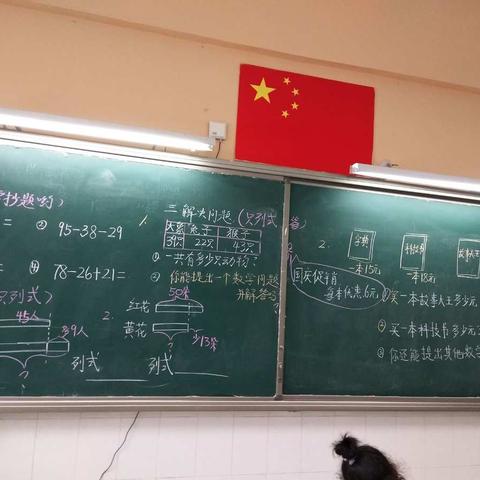 抄题吗)
=
② 95-38-29
=
④ 78-26+21=
只列式)
45人
多9人
?
列式
2.
50米
红花
黄花
少13米
?
列式
三 解决问题 (只列式
大象 兔子 猴子
39只 22只 43只
① 一共有多少只动物?
② 你能提出一个数学问题
并解答吗
2.
字典
一本15元
科技书
一本18元
故事大王
国庆促销
每本优惠6元
① 买一本故事大王多少元
② 买一本科技书多少元
③ 你还能提出其他数学